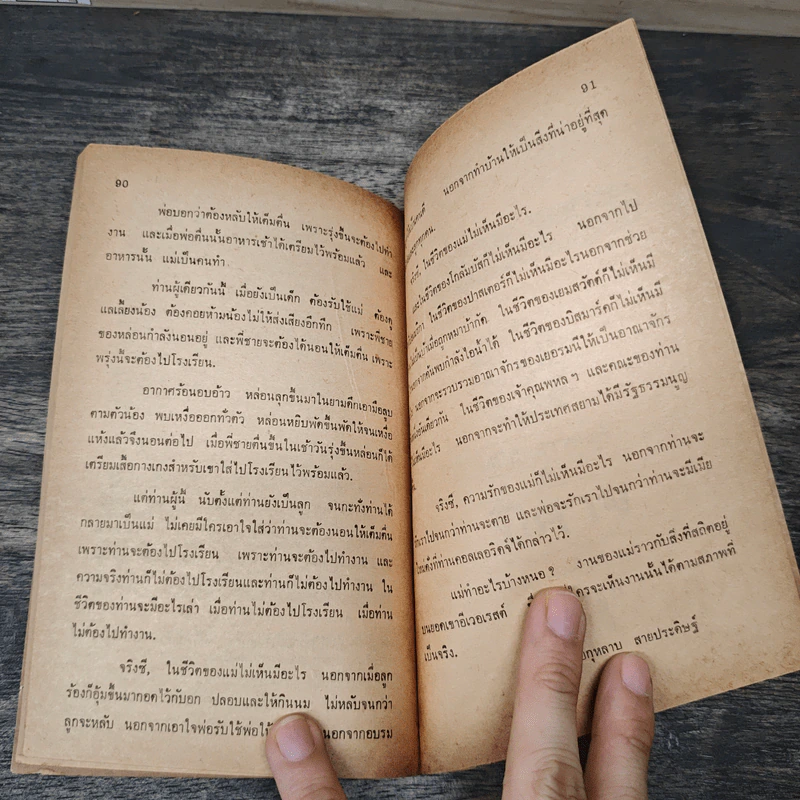 90
พ่อบอกว่าต้องหลับให้เต็มตื่น เพราะรุ่งขึ้นจะต้องไปทำ
งาน และเมื่อพ่อตื่นนั้นอาหารเช้าได้เตรียมไว้พร้อมแล้ว และ
อาหารนั้น แม่เป็นคนทำ
ท่านผู้เดียวกันนี้ เมื่อยังเป็นเด็ก ต้องรับใช้แม่ ต้องดู
แลเลี้ยงน้อง ต้องคอยห้ามน้องไม่ให้ส่งเสียงอึกทึก เพราะพี่ชาย
ของหล่อนกำลังนอนอยู่ และพี่ชายจะต้องได้นอนให้เต็มตื่น เพราะ
พรุ่งนี้จะต้องไปโรงเรียน.
อากาศร้อนอบอ้าว หล่อนลุกขึ้นมาในยามดึกเอามือลูบ
ตามตัวน้อง พบเหงื่อออกทั่วตัว หล่อนหยิบพัดขึ้นพัดให้จนเหงื่อ
แห้งแล้วจึงนอนต่อไป เมื่อพี่ชายตื่นขึ้นในเช้าวันรุ่งขึ้นหล่อนก็ได้
เตรียมเสื้อกางเกงสำหรับเขาใส่ไปโรงเรียนไว้พร้อมแล้ว.
แต่ท่านผู้นี้ นับตั้งแต่ท่านยังเป็นลูก จนกะทั่งท่านได้
กลายมาเป็นแม่ ไม่เคยมีใครเอาใจใส่ว่าท่านจะต้องนอนให้เต็มตื่น
เพราะท่านจะต้องไปโรงเรียน เพราะท่านจะต้องไปทำงาน และ
ความจริงท่านก็ไม่ต้องไปโรงเรียนและท่านก็ไม่ต้องไปทำงาน ใน
ชีวิตของท่านจะมีอะไรเล่า เมื่อท่านไม่ต้องไปโรงเรียน เมื่อท่าน
ไม่ต้องไปทำงาน.
จริงซี, ในชีวิตของแม่ไม่เห็นมีอะไร นอกจากเมื่อลูก
ร้องก็อุ้มขึ้นมากอดไว้กับอก ปลอบและให้กินนม ไม่หลับจนกว่า
ลูกจะหลับ นอกจากเอาใจพ่อรับใช้พ่อให้ นอกจากอบรม
91
นอกจากทำบ้านให้เป็นสิ่งที่น่าอยู่ที่สุด
จริงซี, ในชีวิตของแม่ไม่เห็นมีอะไร.
และในชีวิตของโกลัมบัสก็ไม่เห็นมีอะไร นอกจากไป
ในชีวิตของปาสเตอร์ก็ไม่เห็นมีอะไรนอกจากช่วย
เมื่อถูกหมาบ้ากัด ในชีวิตของเยมสวัตต์ก็ไม่เห็นมี
จากค้นพบกำลังไอน้ำได้ ในชีวิตของบิสมาร์คก็ไม่เห็นมี
นอกจากจะรวบรวมอาณาจักรของเยอรมนีให้เป็นอาณาจักร
อันเดียวกัน ในชีวิตของเจ้าคุณพหลฯ และคณะของท่าน
มีอะไร นอกจากจะทำให้ประเทศสยามได้มีรัฐธรรมนูญ
จริงซี, ความรักของแม่ก็ไม่เห็นมีอะไร นอกจากท่านจะ
รักเราไปจนกว่าท่านจะตาย และพ่อจะรักเราไปจนกว่าท่านจะมีเมีย
ใหม่ ดั่งที่ท่านคอลเลอริดจ์ได้กล่าวไว้.
แม่ทำอะไรบ้างหนอ ๆ งานของแม่ราวกับสิ่งที่สถิตอยู่
บนยอดเขาอีเวอเรสต์ ใครจะเห็นงานนั้นได้ตามสภาพที่
เป็นจริง.
กุหลาบ สายประดิษฐ์